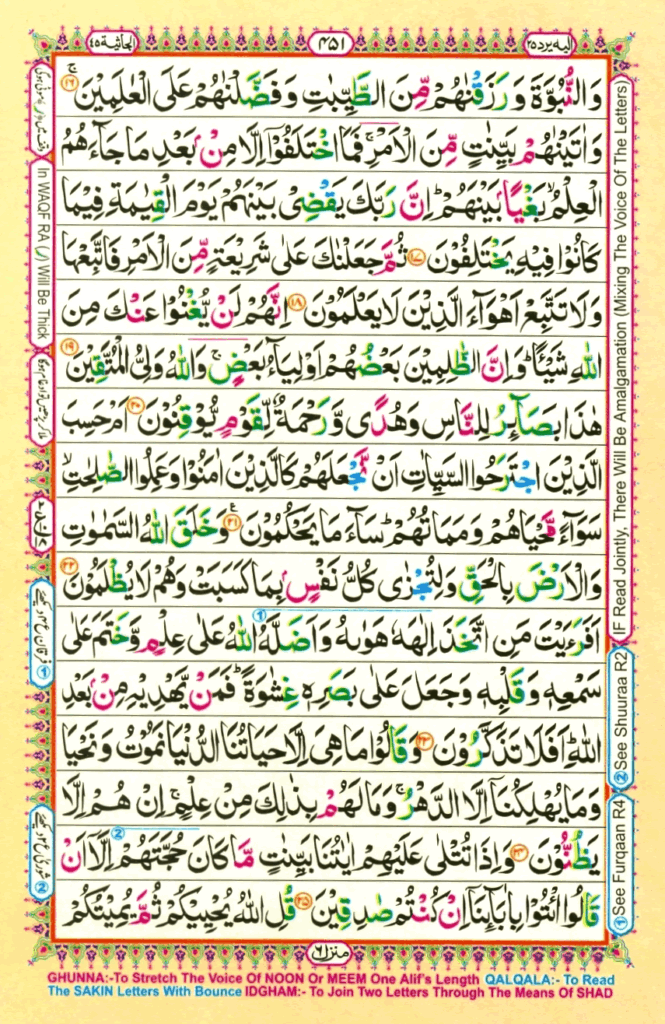 الجاثية ٤٥
٤٥١
اليه يرد ٢٥
وَالنُّبُوَّةَ وَرَزَقْنٰهُمْ مِّنَ الطَّيِّبٰتِ وَفَضَّلْنٰهُمْ عَلَى الْعٰلَمِيْنَ ۚ‏﴿۱۶﴾
وَاٰتَيْنٰهُمْ بَيِّنٰتٍ مِّنَ الْاَمْرِ ۚ فَمَا اخْتَلَفُوْۤا اِلَّا مِنْۢ بَعْدِ مَا جَآءَهُمُ
الْعِلْمُ ۙ بَغْيًاۢ بَيْنَهُمْ ؕ اِنَّ رَبَّكَ يَقْضِىْ بَيْنَهُمْ يَوْمَ الْقِيٰمَةِ فِيْمَا
كَانُوْا فِيْهِ يَخْتَلِفُوْنَ ﴿۱۷﴾ ثُمَّ جَعَلْنٰكَ عَلٰى شَرِيْعَةٍ مِّنَ الْاَمْرِ فَاتَّبِعْهَا
وَلَا تَتَّبِعْ اَهْوَآءَ الَّذِيْنَ لَا يَعْلَمُوْنَ ﴿۱۸﴾ اِنَّهُمْ لَنْ يُّغْنُوْا عَنْكَ مِنَ
اللّٰهِ شَيْئًا ؕ وَاِنَّ الظّٰلِمِيْنَ بَعْضُهُمْ اَوْلِيَآءُ بَعْضٍ ۚ وَاللّٰهُ وَلِىُّ الْمُتَّقِيْنَ ﴿۱۹﴾
هٰذَا بَصَآئِرُ لِلنَّاسِ وَهُدًى وَّرَحْمَةٌ لِّقَوْمٍ يُّوْقِنُوْنَ ﴿۲۰﴾ اَمْ حَسِبَ
الَّذِيْنَ اجْتَرَحُوا السَّيِّاٰتِ اَنْ نَّجْعَلَهُمْ كَالَّذِيْنَ اٰمَنُوْا وَعَمِلُوا الصّٰلِحٰتِ ۙ
سَوَآءً مَّحْيَاهُمْ وَمَمَاتُهُمْ ؕ سَآءَ مَا يَحْكُمُوْنَ ﴿۲۱﴾ وَخَلَقَ اللّٰهُ السَّمٰوٰتِ
وَالْاَرْضَ بِالْحَقِّ وَلِتُجْزٰى كُلُّ نَفْسٍۢ بِمَا كَسَبَتْ وَهُمْ لَا يُظْلَمُوْنَ ﴿۲۲﴾
اَفَرَءَيْتَ مَنِ اتَّخَذَ اِلٰهَهٗ هَوٰىهُ وَاَضَلَّهُ اللّٰهُ عَلٰى عِلْمٍ وَّخَتَمَ عَلٰى
سَمْعِهٖ وَقَلْبِهٖ وَجَعَلَ عَلٰى بَصَرِهٖ غِشٰوَةً ؕ فَمَنْ يَّهْدِيْهِ مِنْۢ بَعْدِ
اللّٰهِ ؕ اَفَلَا تَذَكَّرُوْنَ ﴿۲۳﴾ وَقَالُوْا مَا هِىَ اِلَّا حَيَاتُنَا الدُّنْيَا نَمُوْتُ وَنَحْيَا
وَمَا يُهْلِكُنَاۤ اِلَّا الدَّهْرُ ۚ وَمَا لَهُمْ بِذٰلِكَ مِنْ عِلْمٍ ۚ اِنْ هُمْ اِلَّا
يَظُنُّوْنَ ﴿۲۴﴾ وَاِذَا تُتْلٰى عَلَيْهِمْ اٰيٰتُنَا بَيِّنٰتٍ مَّا كَانَ حُجَّتَهُمْ اِلَّاۤ اَنْ
قَالُوا ائْتُوْا بِاٰبَآئِنَاۤ اِنْ كُنْتُمْ صٰدِقِيْنَ ﴿۲۵﴾ قُلِ اللّٰهُ يُحْيِيْكُمْ ثُمَّ يُمِيْتُكُمْ
منزل ٦
In WAQF RA (ر) Will Be Thick
IF Read Jointly, There Will Be Amalgamation (Mixing The Voice Of The Letters)
② See Shuuraa R2
① See Furqaan R4
GHUNNA:-To Stretch The Voice Of NOON Or MEEM One Alif's Length QALQALA:- To Read
The SAKIN Letters With Bounce IDGHAM:- To Join Two Letters Through The Means Of SHAD